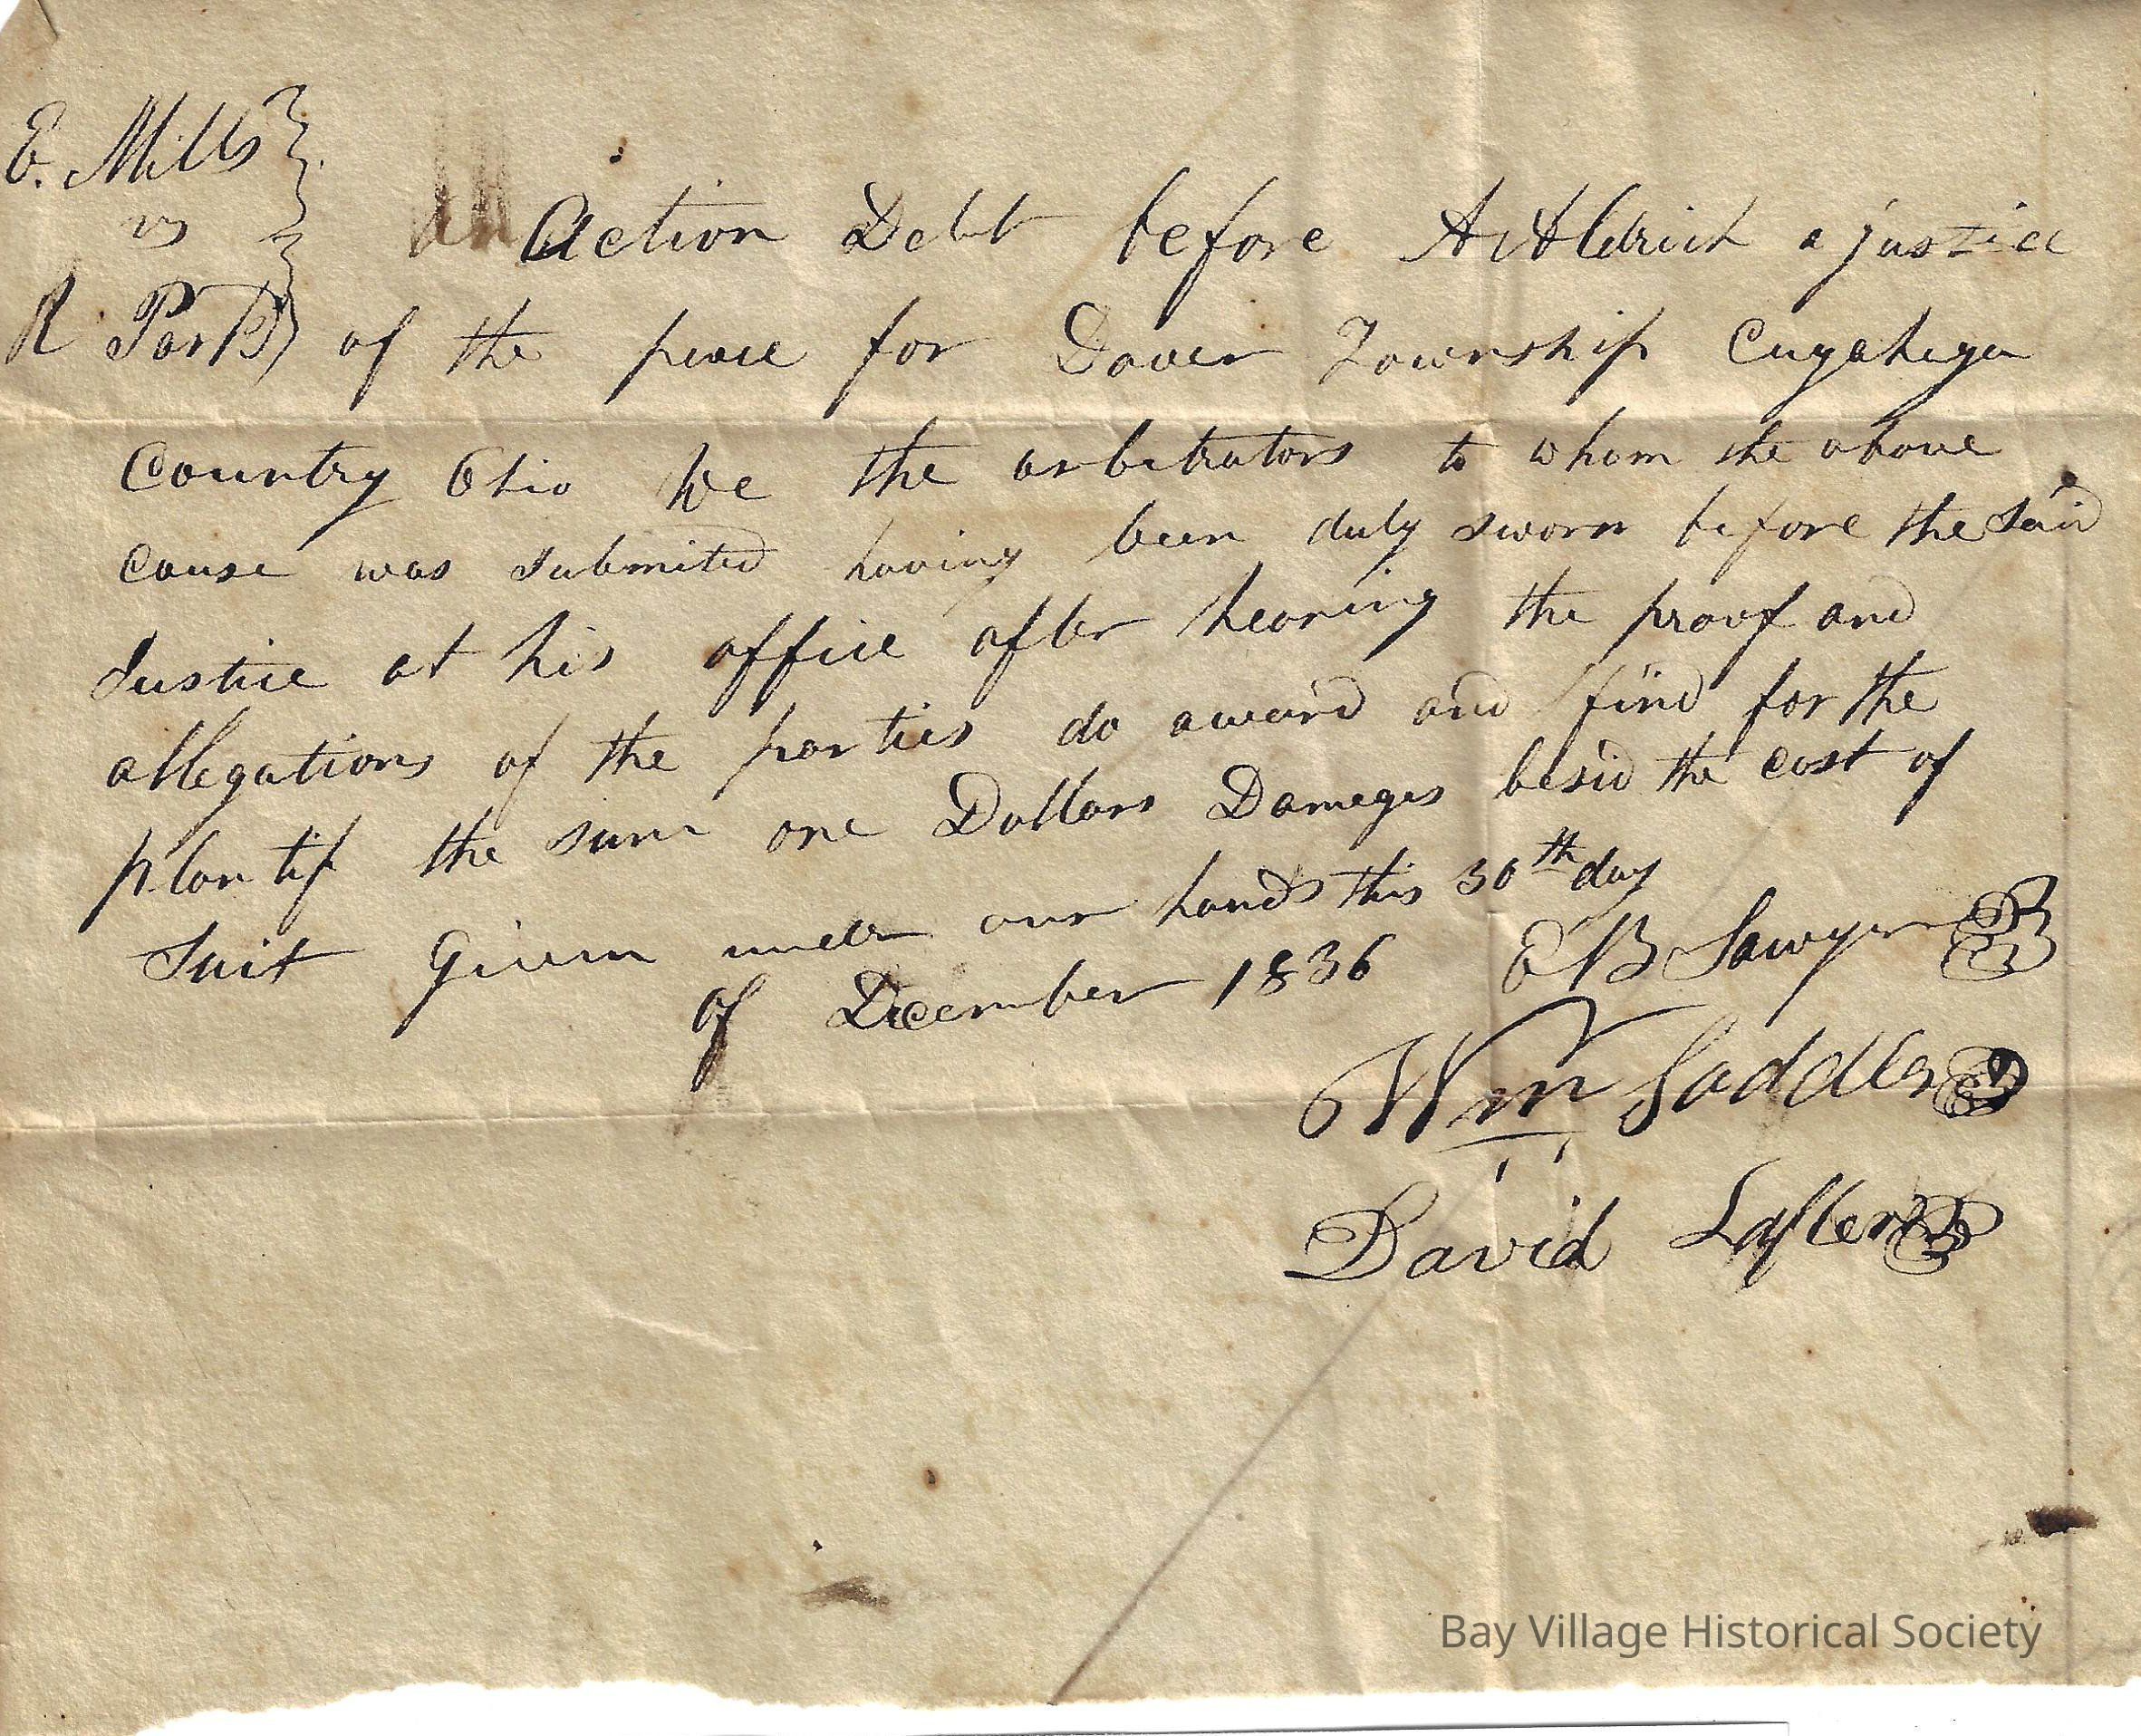 E. Mills
vs
R Parks
An Action Debt before A Aldrich a justice
of the peace for Dover Township Cuyahuga
Country Ohio We the arbitrators to whom the above
cause was submited having been duly sworn before the said
Justice at his office after hearing the proof and
allegations of the parties do award and find for the
plantif the sum one Dollars Dameges besid the cost of
Suit Given under our hands this 30th day
of December 1836
E B Sawyer
Wm Saddler
David
Bay Village Historical Society